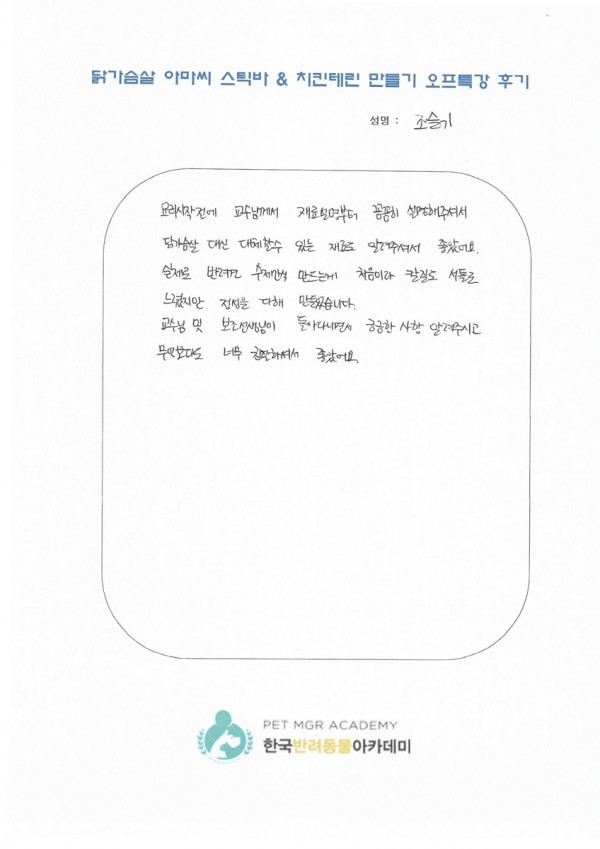 닭가슴살 아마씨 스틱바 & 치킨테린 만들기 오프특강 후기
성명 : 조슬기
요리시작전에 교수님께서 재료설명부터 꼼꼼히 설명해주셔서
닭가슴살 대신 대체할수 있는 재료도 알려주셔서 좋았어요.
실제로 반려견 수제간식 만드는게 처음이라 칼질도 서툴고
느렸지만 정성을 다해 만들었습니다.
교수님 및 보조선생님이 돌아다니면서 궁금한 사항 알려주시고
무엇보다도 너무 친절하셔서 좋았어요.
PET MGR ACADEMY
한국반려동물아카데미